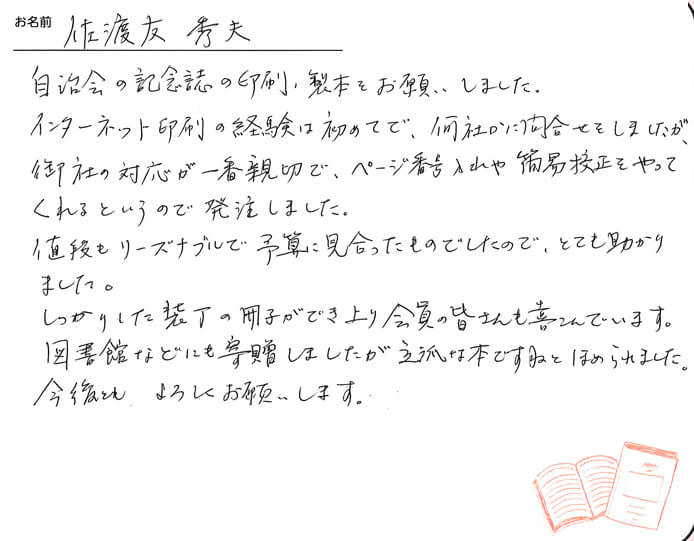 お名前 佐渡友 秀夫
自治会の記念誌の印刷、製本をお願いしました。
インターネット印刷の経験は初めてで、何社かに問合せをしましたが、
御社の対応が一番親切で、ページ番号入れや簡易校正をやって
くれるというので発注しました。
値段もリーズナブルで予算に見合ったものでしたので、とても助かり
ました。
しっかりした装丁の冊子ができ上り会員の皆さんも喜こんでいます。
図書館などにも寄贈しましたが立派な本ですねとほめられました。
今後とも よろしくお願いします。